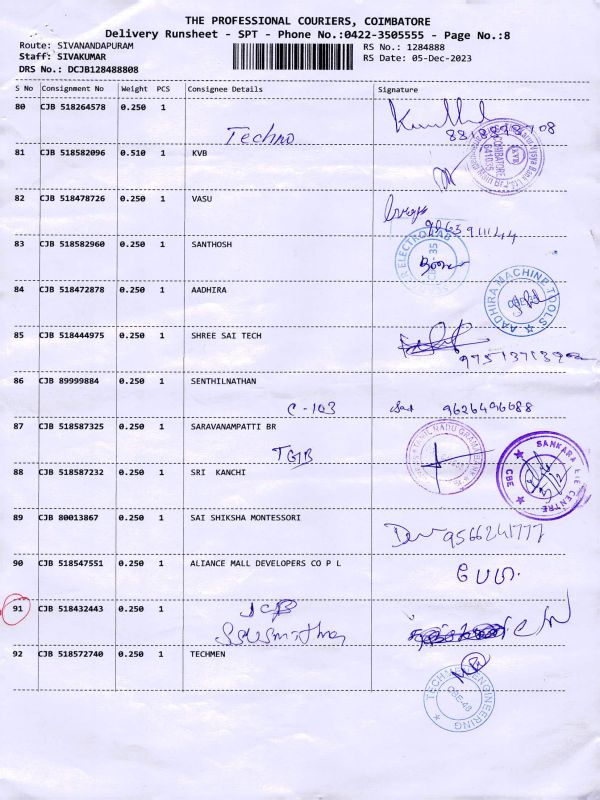 THE PROFESSIONAL COURIERS, COIMBATORE
Delivery Runsheet - SPT - Phone No.:0422-3505555 - Page No.:8
Route: SIVANANDAPURAM
RS No.: 1284888
Staff: SIVAKUMAR
RS Date: 05-Dec-2023
DRS No.: DCJB128488808
S No Consignment No Weight PCS Consignee Details Signature
80 CJB 518264578 0.250 1
Techno
81 CJB 518582096 0.510 1 KVB
82 CJB 518478726 0.250 1 VASU
83 CJB 518582960 0.250 1 SANTHOSH
84 CJB 518472878 0.250 1 AADHIRA
AADHIRA MACHINE TOOLS
85 CJB 518444975 0.250 1 SHREE SAI TECH
86 CJB 89999884 0.250 1 SENTHILNATHAN
C-103 9626496688
87 CJB 518587325 0.250 1 SARAVANAMPATTI BR
TGB
88 CJB 518587232 0.250 1 SRI KANCHI
SANKARA EYE CENTRE
CBE
89 CJB 80013867 0.250 1 SAI SHIKSHA MONTESSORI
9566241777
90 CJB 518547551 0.250 1 ALIANCE MALL DEVELOPERS CO P L
91 CJB 518432443 0.250 1
92 CJB 518572740 0.250 1 TECHMEN
TECHMEN ENGINEERING
CBE-48